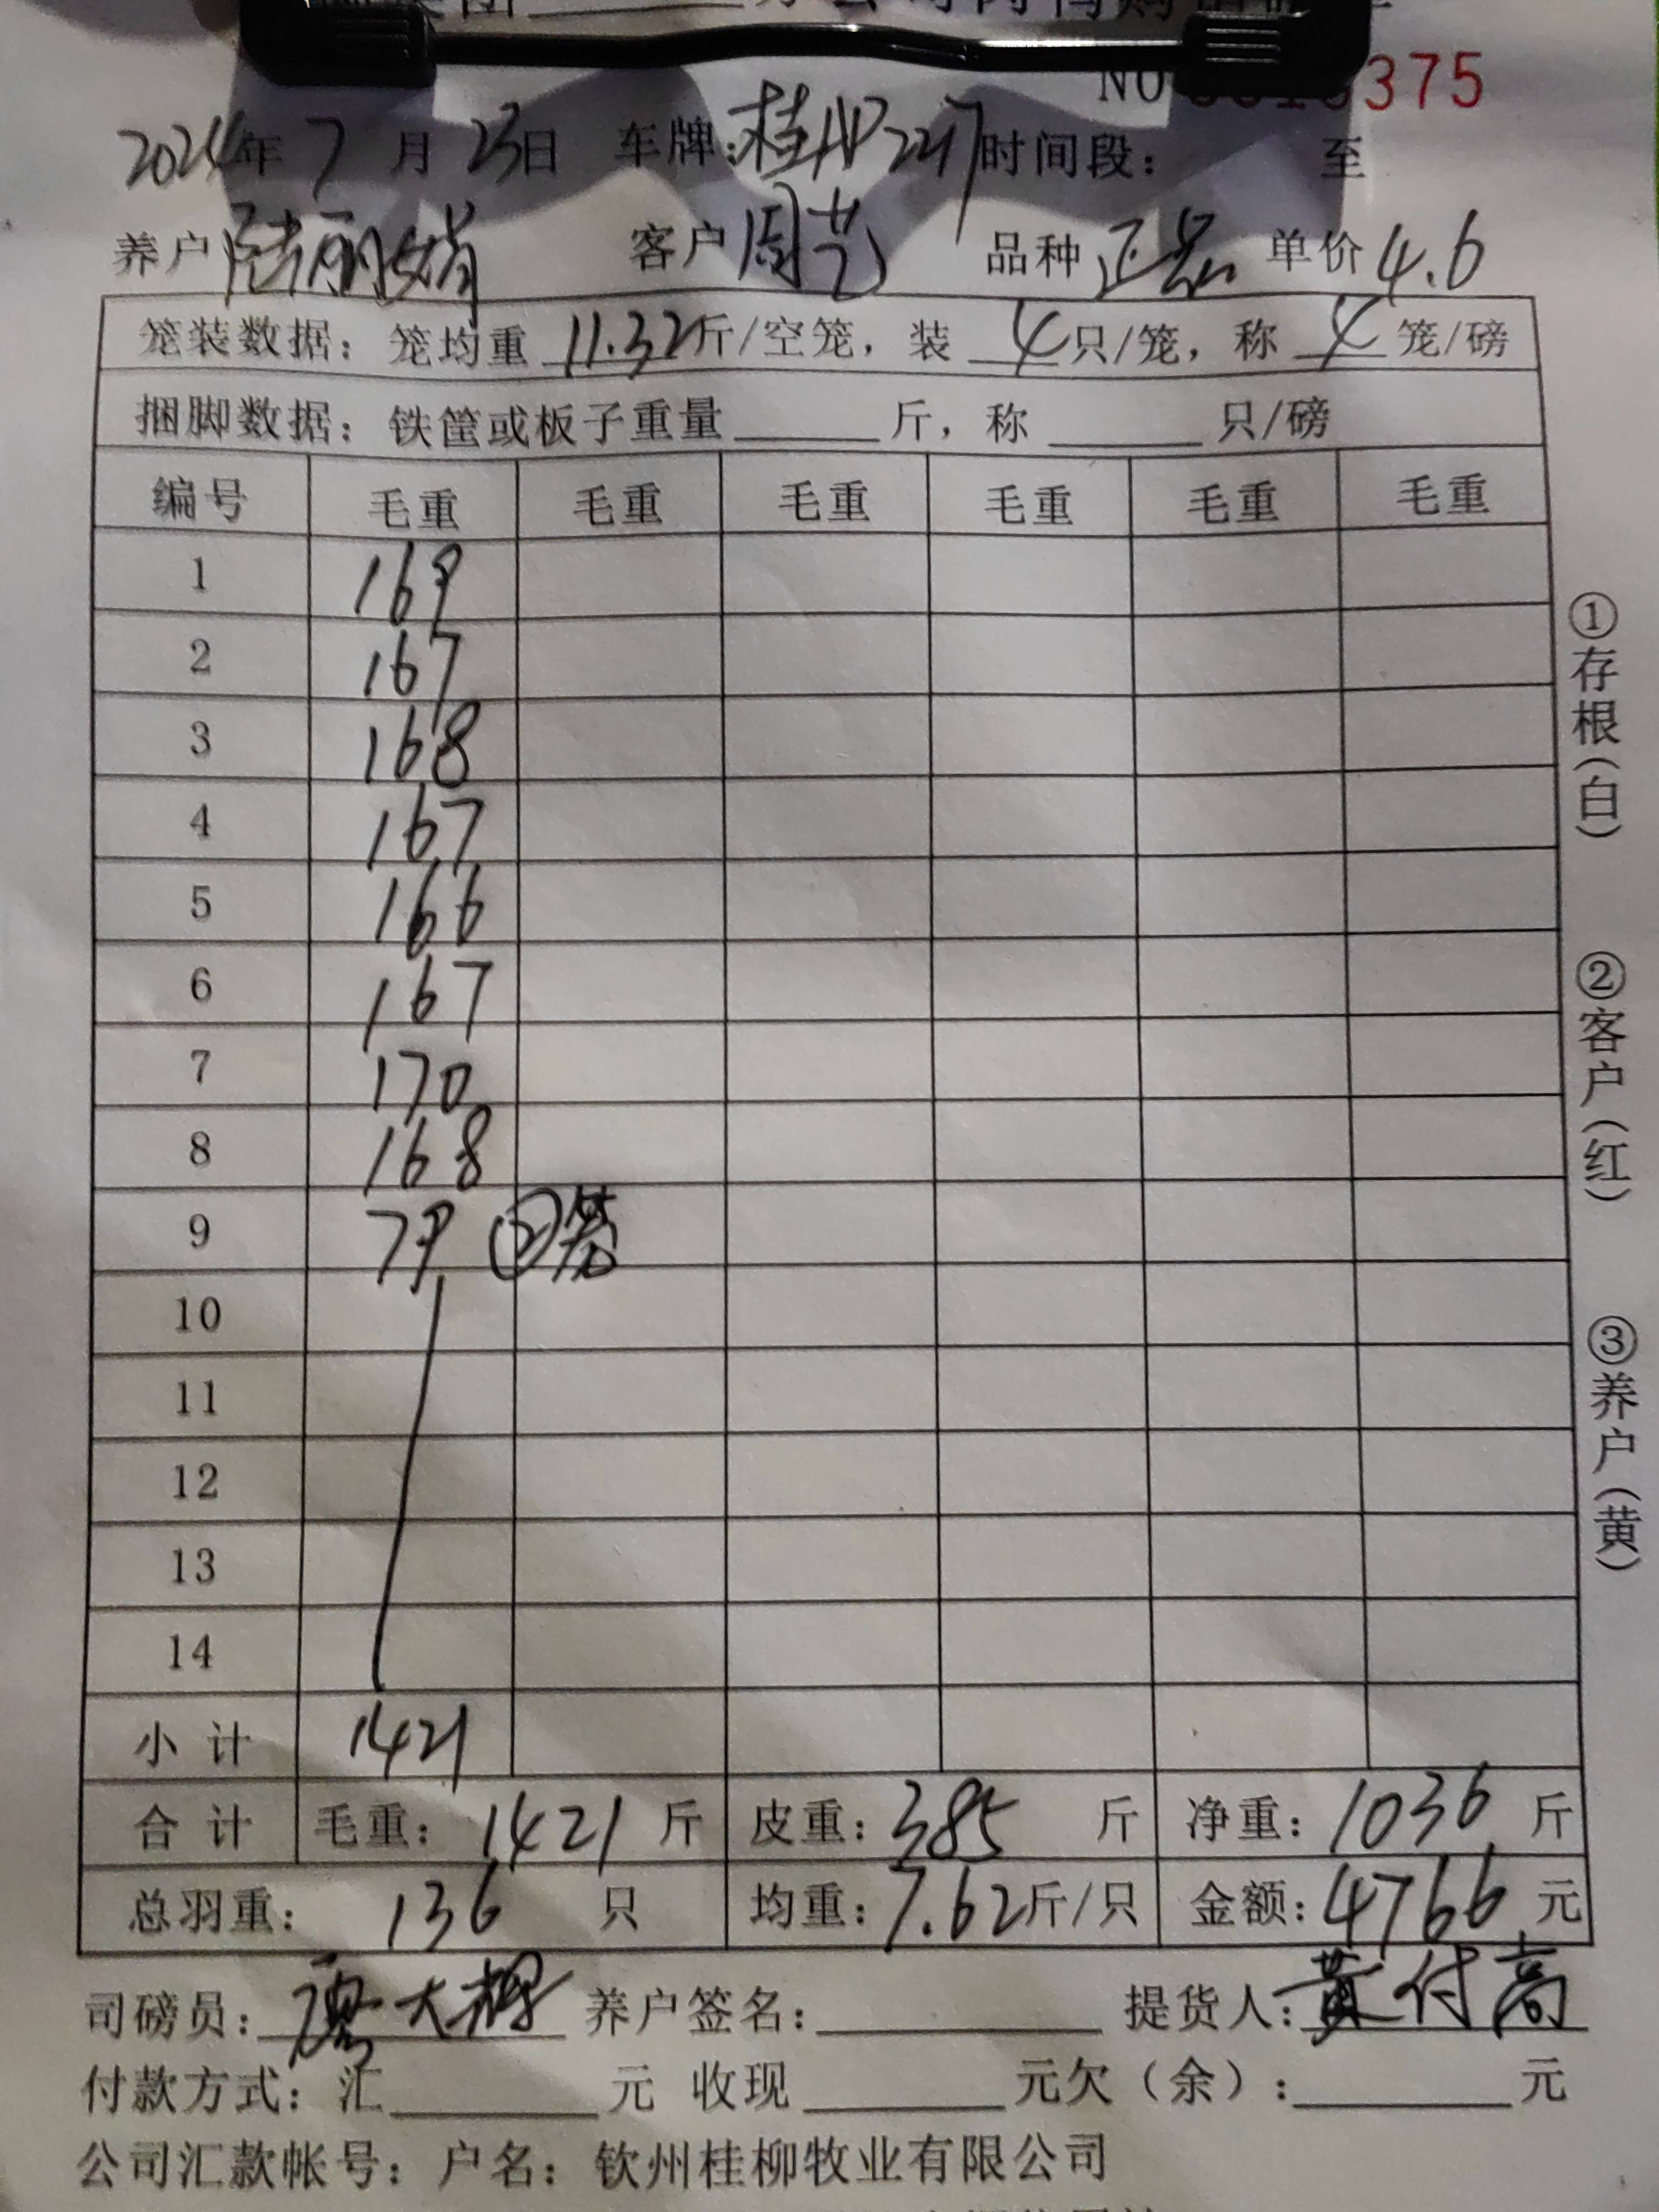 375
2024年 7 月 23日 车牌: 2217 时间段: 至
养户 陆丽娟 客户 周艺 品种 正品 单价 4.6
笼装数据: 笼均重 11.32斤/空笼, 装 4只/笼, 称 4 笼/磅
捆脚数据: 铁筐或板子重量 斤, 称 只/磅
编号 毛重 毛重 毛重 毛重 毛重 毛重
1 169
2 167
3 168
4 167
5 166
6 167
7 170
8 168
9 79 ②笼
10
11
12
13
14
小计 1421
合计 毛重: 1421 斤 皮重: 385 斤 净重: 1036 斤
总羽重: 136 只 均重: 7.62斤/只 金额: 4766 元
司磅员: 廖大 养户签名: 提货人: 黄付高
付款方式: 汇 元 收现 元欠(余): 元
公司汇款帐号: 户名: 钦州桂柳牧业有限公司
①存根(白)
②客户(红)
③养户(黄)